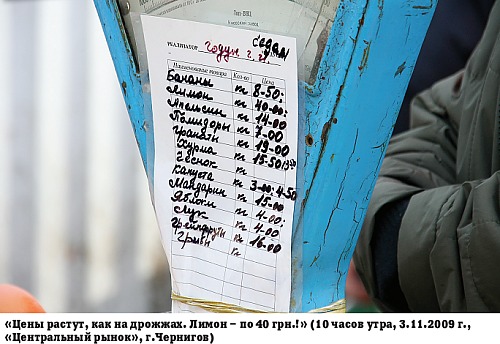 Тип-ВН1
РЕАЛИЗАТОР Годун Г. Н.
Наименование товара Кол-во Цена
Бананы кг 8-50;
Лимон кг 40-00;
Апельсин кг 14-00
Помидоры кг 7-00
Гранаты кг 19-00
Хурма кг 15-50
Чеснок кг
Капуста кг 3-00; 4-50
Мандарин кг 15-00
Яблоки кг 4-00;
Лук кг 4-00
Грейпфруты кг 16-00
Грибы кг
«Цены растут, как на дрожжах. Лимон – по 40 грн.!» (10 часов утра, 3.11.2009 г.,
«Центральный рынок», г.Чернигов)